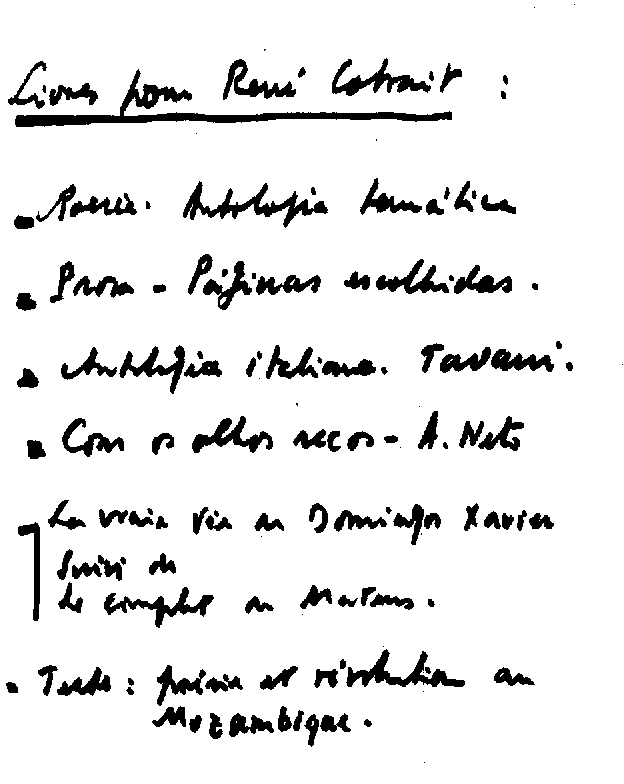 Livres pour René Cotrait :
- Poesia. Antologia temática
- Prosa - Páginas escolhidas.
- Antologia italiana. Tavani.
- Com os olhos secos - A. Neto
- La vraie vie de Domingos Xavier
suivi de
Le complet de Mateus.
- Texte : poésie et révolution au
Mozambique.